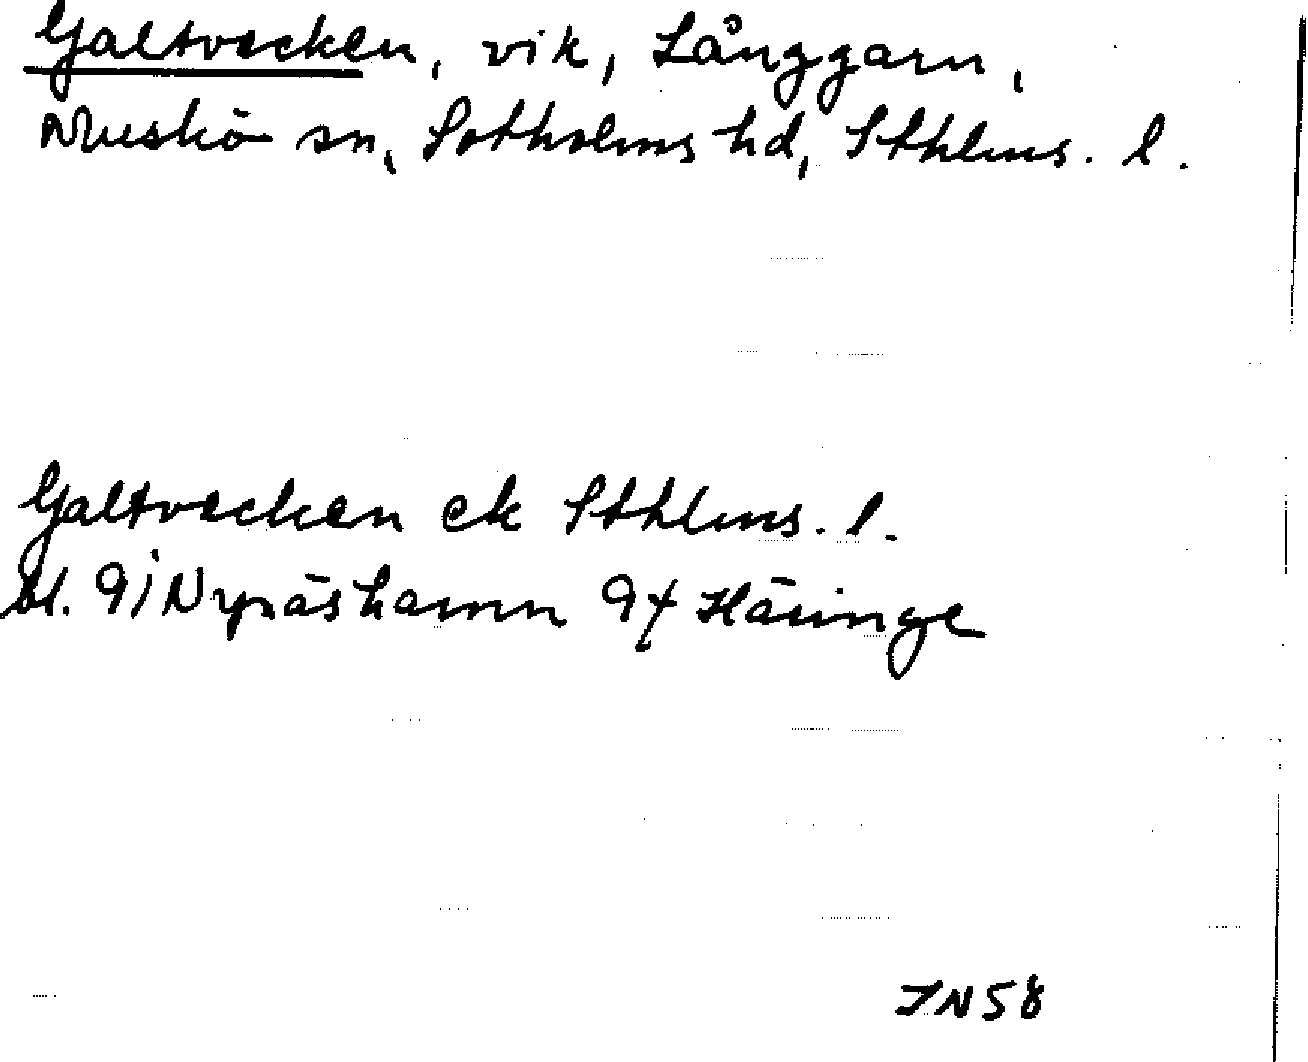 Galtvecken, vik, Långgarn,
Muskö sn, Sotholms hd, Sthlms. l.
Galtvecken ek Sthlms. l.
bl. 9i Nynäshamn 9f Häringe
JN58